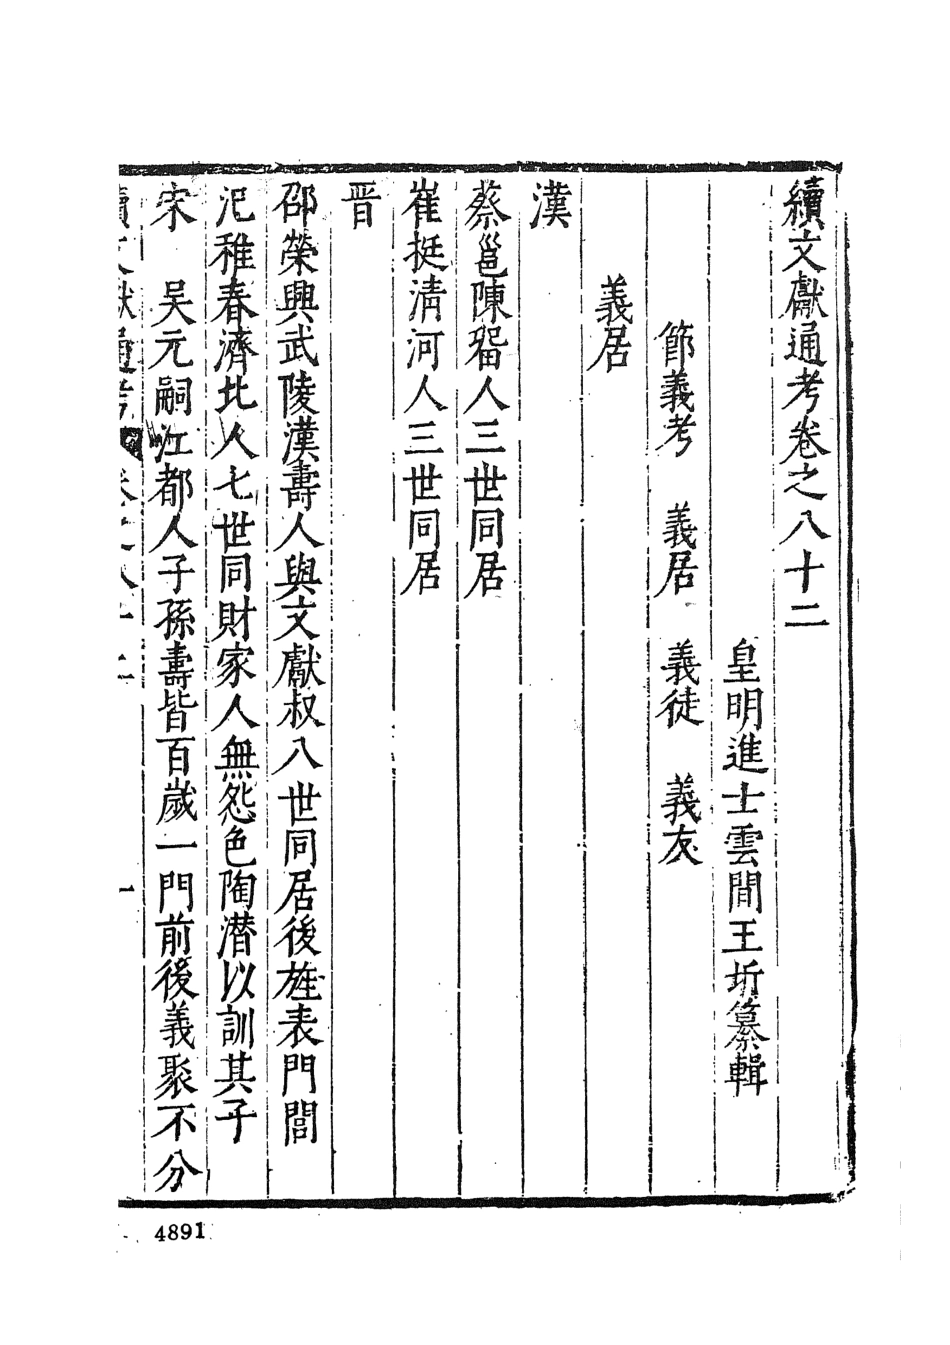 續文獻通考卷之八十二
皇明進士雲間王圻纂輯
節義考　義居　義徒　義友
義居
漢
蔡邕陳畱人三世同居
崔挺清河人三世同居
晋
邵榮興武陵漢壽人與文獻叔八世同居後旌表門閭
氾稚春濟北人七世同財家人無怨色陶潜以訓其子
宋　吴元嗣江都人子孫壽皆百歲一門前後義聚不分
續文獻通考　卷之八十二　一
4891